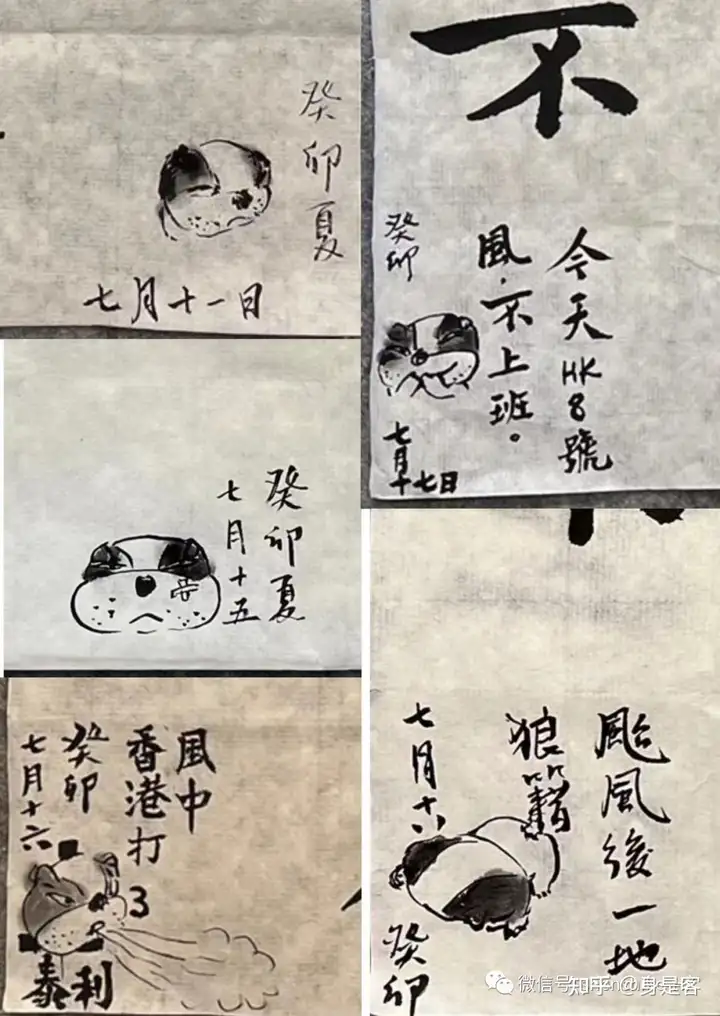 癸卯夏
七月十一日
不
今天HK8號
風.不上班。
癸卯
七月十七日
癸卯夏
七月十五
風中
香港打3
癸卯
七月十六
泰利
颱風後一地
狼籍
七月十八
癸卯
知乎 @身是客
微信号